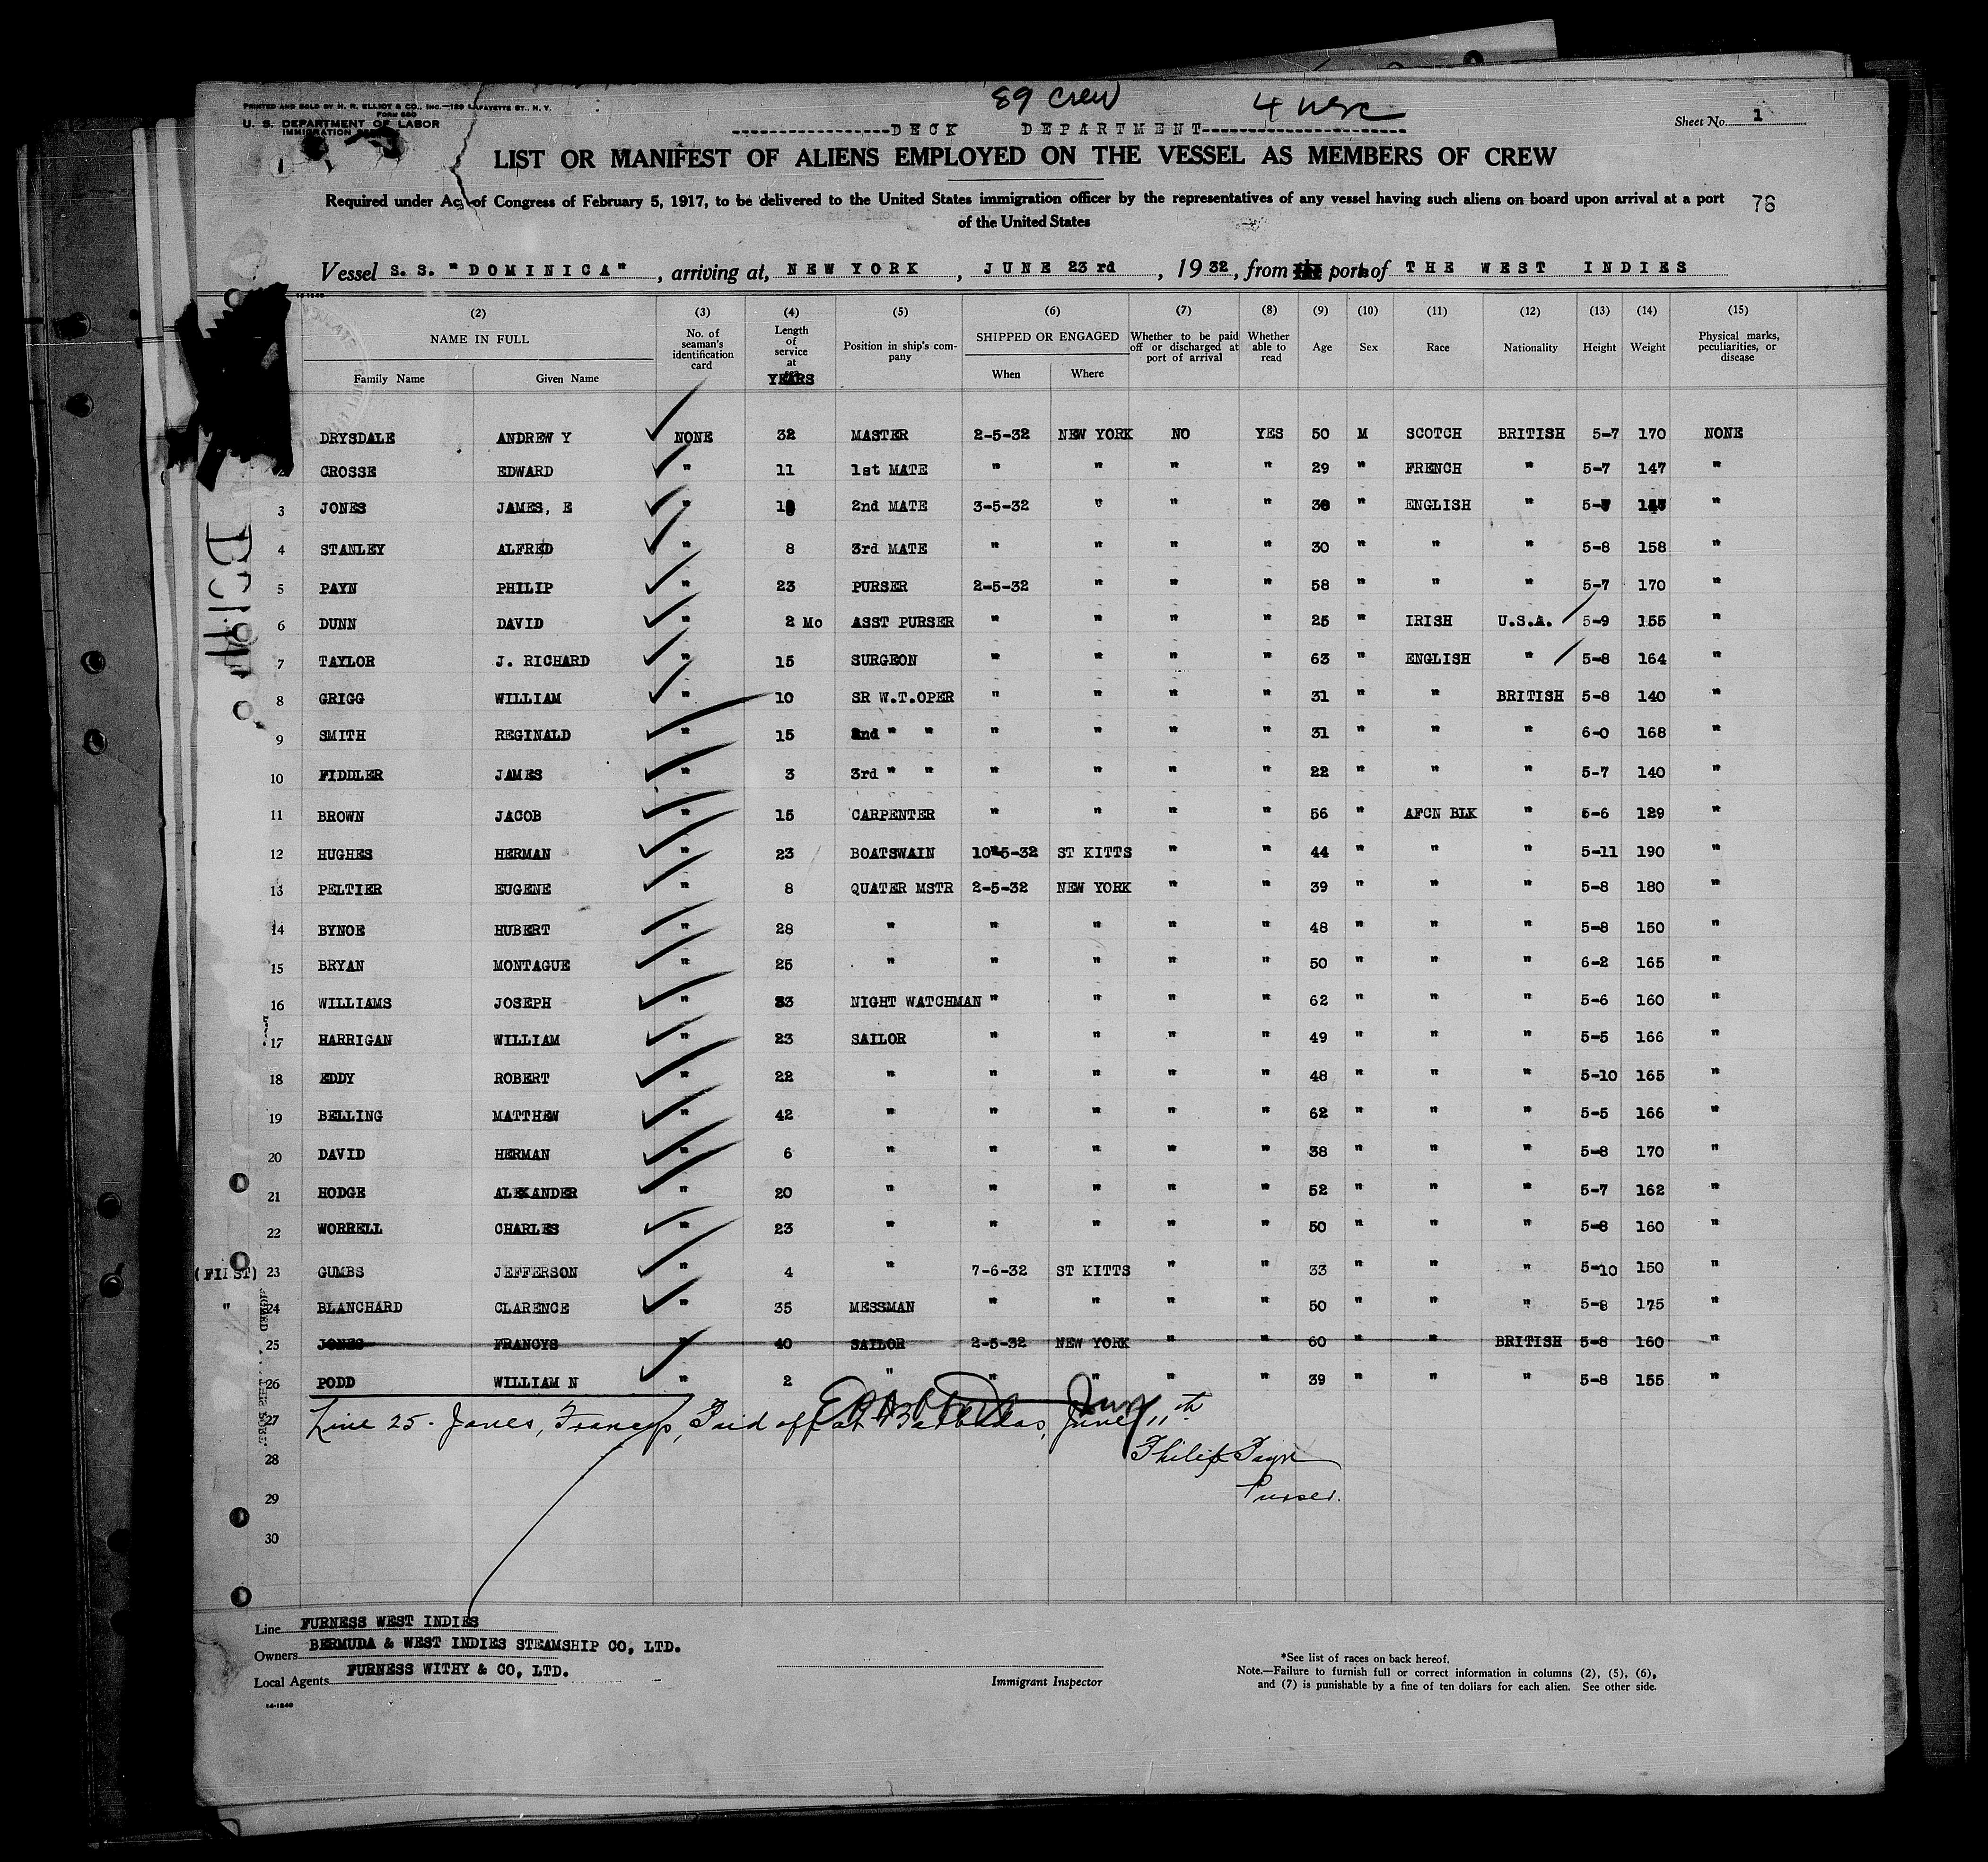 89 Crew
4 usc
PRINTED AND SOLD BY H. R. ELLIOT & CO., INC.—129 LAFAYETTE ST., N. Y.
FORM 680
U. S. DEPARTMENT OF LABOR
IMMIGRATION
DECK DEPARTMENT
Sheet No. 1
LIST OR MANIFEST OF ALIENS EMPLOYED ON THE VESSEL AS MEMBERS OF CREW
Required under Ac of Congress of February 5, 1917, to be delivered to the United States immigration officer by the representatives of any vessel having such aliens on board upon arrival at a port
of the United States
76
Vessel S. S. "DOMINICA", arriving at, NEW YORK, JUNE 23rd, 1932, from ports of THE WEST INDIES
14-1240
(2) (3) (4) (5) (6) (7) (8) (9) (10) (11) (12) (13) (14) (15)
NAME IN FULL No. of seaman's identification card Length of service at YEARS Position in ship's company SHIPPED OR ENGAGED Whether to be paid off or discharged at port of arrival Whether able to read Age Sex Race Nationality Height Weight Physical marks, peculiarities, or disease
Family Name Given Name When Where
DRYSDALE ANDREW Y NONE 32 MASTER 2-5-32 NEW YORK NO YES 50 M SCOTCH BRITISH 5-7 170 NONE
2 CROSSE EDWARD " 11 1st MATE " " " " 29 " FRENCH " 5-7 147 "
3 JONES JAMES, E " 2nd MATE 3-5-32 " " " " ENGLISH " "
4 STANLEY ALFRED " 8 3rd MATE " " " " 30 " " " 5-8 158 "
5 PAYN PHILIP " 23 PURSER 2-5-32 " " " 58 " " " 5-7 170 "
6 DUNN DAVID " 2 Mo ASST PURSER " " " " 25 " IRISH U.S.A. 5-9 155 "
7 TAYLOR J. RICHARD " 15 SURGEON " " " " 63 " ENGLISH " 5-8 164 "
8 GRIGG WILLIAM " 10 SR W.T.OPER " " " " 31 " " BRITISH 5-8 140 "
9 SMITH REGINALD " 15 2nd " " " " " " 31 " " " 6-0 168 "
10 FIDDLER JAMES " 3 3rd " " " " " " 22 " " " 5-7 140 "
11 BROWN JACOB " 15 CARPENTER " " " " 56 " AFCN BLK " 5-6 129 "
12 HUGHES HERMAN " 23 BOATSWAIN 10-5-32 ST KITTS " " 44 " " " 5-11 190 "
13 PELTIER EUGENE " 8 QUATER MSTR 2-5-32 NEW YORK " " 39 " " " 5-8 180 "
14 BYNOE HUBERT " 28 " " " " " 48 " " " 5-8 150 "
15 BRYAN MONTAGUE " 25 " " " " " 50 " " " 6-2 165 "
16 WILLIAMS JOSEPH " 33 NIGHT WATCHMAN " " " " 62 " " " 5-6 160 "
17 HARRIGAN WILLIAM " 23 SAILOR " " " " 49 " " " 5-5 166 "
18 EDDY ROBERT " 22 " " " " " 48 " " " 5-10 165 "
19 BELLING MATTHEW " 42 " " " " " 62 " " " 5-5 166 "
20 DAVID HERMAN " 6 " " " " " 38 " " " 5-8 170 "
21 HODGE ALEXANDER " 20 " " " " " 52 " " " 5-7 162 "
22 WORRELL CHARLES " 23 " " " " " 50 " " " 5-8 160 "
(FIRST) 23 GUMBS JEFFERSON " 4 " 7-6-32 ST KITTS " " 33 " " " 5-10 150 "
" 24 BLANCHARD CLARENCE " 35 MESSMAN " " " " 50 " " " 5-8 175 "
25 JONES FRANCYS " 40 SAILOR 2-5-32 NEW YORK " " 60 " " BRITISH 5-8 160 "
26 PODD WILLIAM N " 2 " " " " " 39 " " " 5-8 155 "
27 Line 25. Jones, Francys, Paid off at Barbados, June 11th
28 Philip Payn
29 Purser.
30
Line FURNESS WEST INDIES
Owners BERMUDA & WEST INDIES STEAMSHIP CO, LTD.
Local Agents FURNESS WITHY & CO, LTD.
14-1240
Immigrant Inspector
*See list of races on back hereof.
Note.—Failure to furnish full or correct information in columns (2), (5), (6), and (7) is punishable by a fine of ten dollars for each alien. See other side.